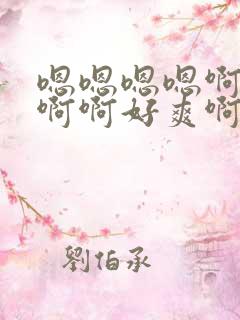 嗯嗯嗯嗯啊
啊啊好爽啊
劉伯承